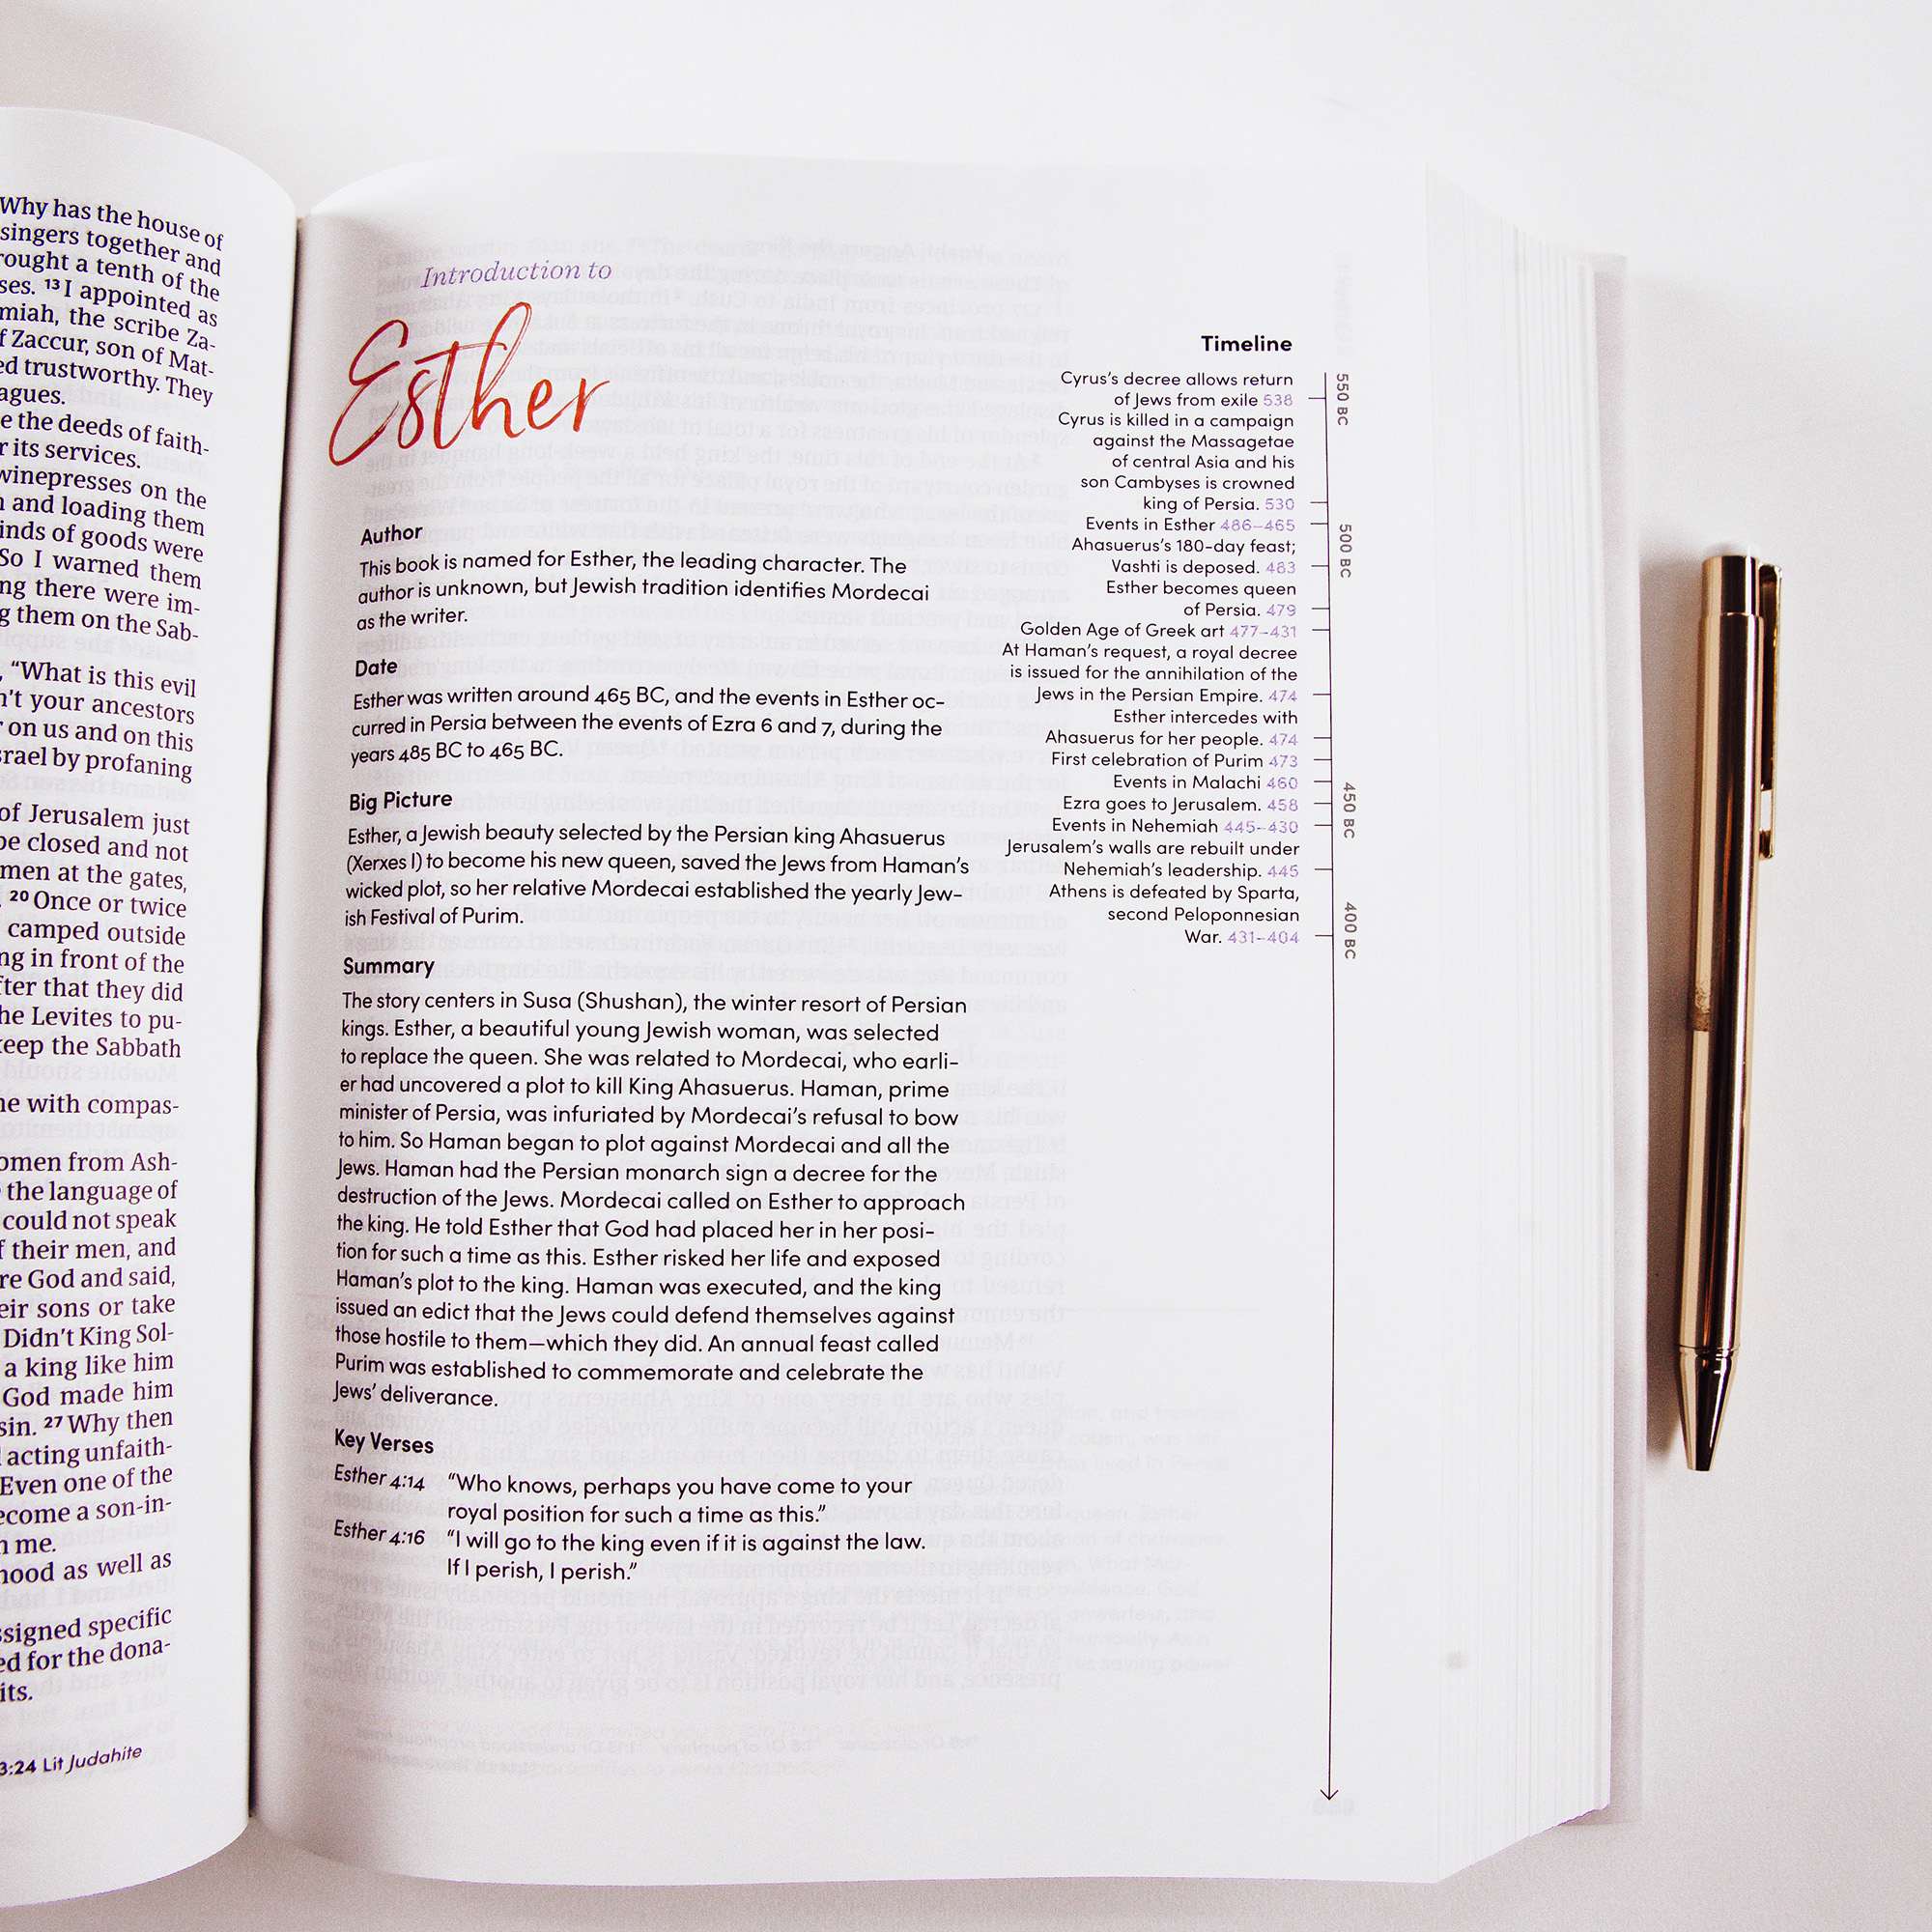 Why has the house of
singers together and
rought a tenth of the
ses. 13 I appointed as
miah, the scribe Za-
f Zaccur, son of Mat-
ed trustworthy. They
agues.
e the deeds of faith-
r its services.
winepresses on the
n and loading them
inds of goods were
So I warned them
ng there were im-
g them on the Sab-
, “What is this evil
n’t your ancestors
r on us and on this
srael by profaning
of Jerusalem just
be closed and not
men at the gates,
20 Once or twice
camped outside
ng in front of the
fter that they did
he Levites to pu-
keep the Sabbath
ne with compas-
omen from Ash-
the language of
could not speak
f their men, and
re God and said,
eir sons or take
Didn’t King Sol-
a king like him
God made him
sin. 27 Why then
acting unfaith-
Even one of the
ecome a son-in-
m me.
hood as well as
ssigned specific
ed for the dona-
its.
3:24 Lit Judahite
Introduction to
Esther
Author
This book is named for Esther, the leading character. The
author is unknown, but Jewish tradition identifies Mordecai
as the writer.
Date
Esther was written around 465 BC, and the events in Esther oc-
curred in Persia between the events of Ezra 6 and 7, during the
years 485 BC to 465 BC.
Big Picture
Esther, a Jewish beauty selected by the Persian king Ahasuerus
(Xerxes I) to become his new queen, saved the Jews from Haman’s
wicked plot, so her relative Mordecai established the yearly Jew-
ish Festival of Purim.
Summary
The story centers in Susa (Shushan), the winter resort of Persian
kings. Esther, a beautiful young Jewish woman, was selected
to replace the queen. She was related to Mordecai, who earli-
er had uncovered a plot to kill King Ahasuerus. Haman, prime
minister of Persia, was infuriated by Mordecai’s refusal to bow
to him. So Haman began to plot against Mordecai and all the
Jews. Haman had the Persian monarch sign a decree for the
destruction of the Jews. Mordecai called on Esther to approach
the king. He told Esther that God had placed her in her posi-
tion for such a time as this. Esther risked her life and exposed
Haman’s plot to the king. Haman was executed, and the king
issued an edict that the Jews could defend themselves against
those hostile to them—which they did. An annual feast called
Purim was established to commemorate and celebrate the
Jews’ deliverance.
Key Verses
Esther 4:14 “Who knows, perhaps you have come to your
royal position for such a time as this.”
Esther 4:16 “I will go to the king even if it is against the law.
If I perish, I perish.”
Timeline
Cyrus’s decree allows return
of Jews from exile 538
Cyrus is killed in a campaign
against the Massagetae
of central Asia and his
son Cambyses is crowned
king of Persia. 530
Events in Esther 486–465
Ahasuerus’s 180-day feast;
Vashti is deposed. 483
Esther becomes queen
of Persia. 479
Golden Age of Greek art 477–431
At Haman’s request, a royal decree
is issued for the annihilation of the
Jews in the Persian Empire. 474
Esther intercedes with
Ahasuerus for her people. 474
First celebration of Purim 473
Events in Malachi 460
Ezra goes to Jerusalem. 458
Events in Nehemiah 445–430
Jerusalem’s walls are rebuilt under
Nehemiah’s leadership. 445
Athens is defeated by Sparta,
second Peloponnesian
War. 431–404
550 BC
500 BC
450 BC
400 BC